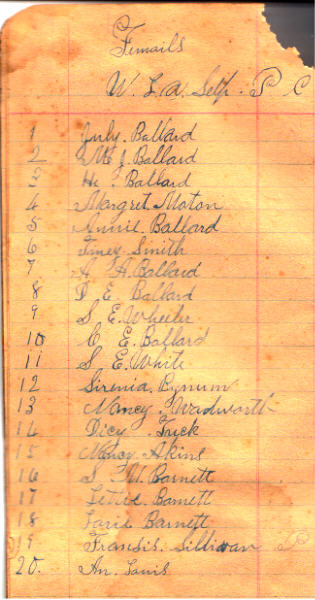 Femails
W. L. A. Self. P C
1 July. Ballard
2 M. J. Ballard
3 H. Ballard
4 Margret. Moton
5 Annie. Ballard
6 Smith
7 A. A. Ballard
8 D E Ballard
9 S. E. Wheeler
10 C. E. Ballard
11 S. E. White
12 Sirenia. Bynum
13 Nancy. Wadworth
14 Dicy. Trick
15 Nancy Akins
16 S. M. Barnett
17 Letitie. Barnett
18 Barnett
19 Fransis. Sillivan P
20. An. Louis